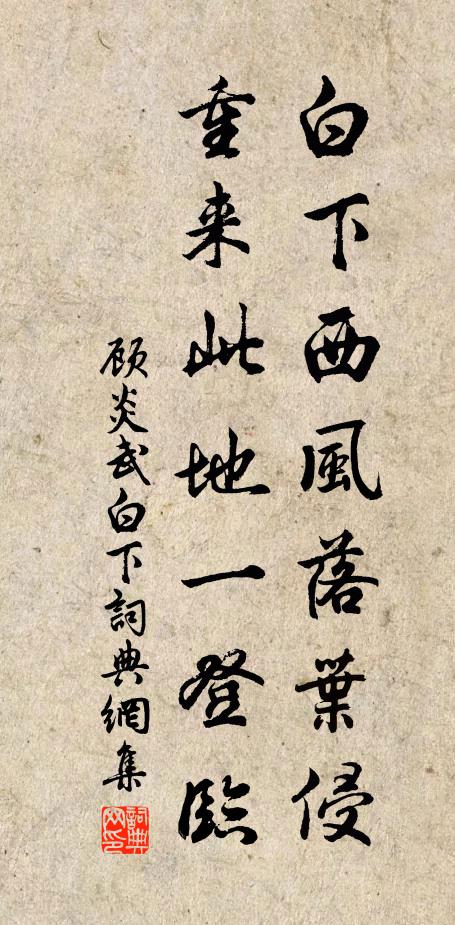 白下西風落葉侵
重来此地一登臨
顾炎武白下詞典網集
詞典网印